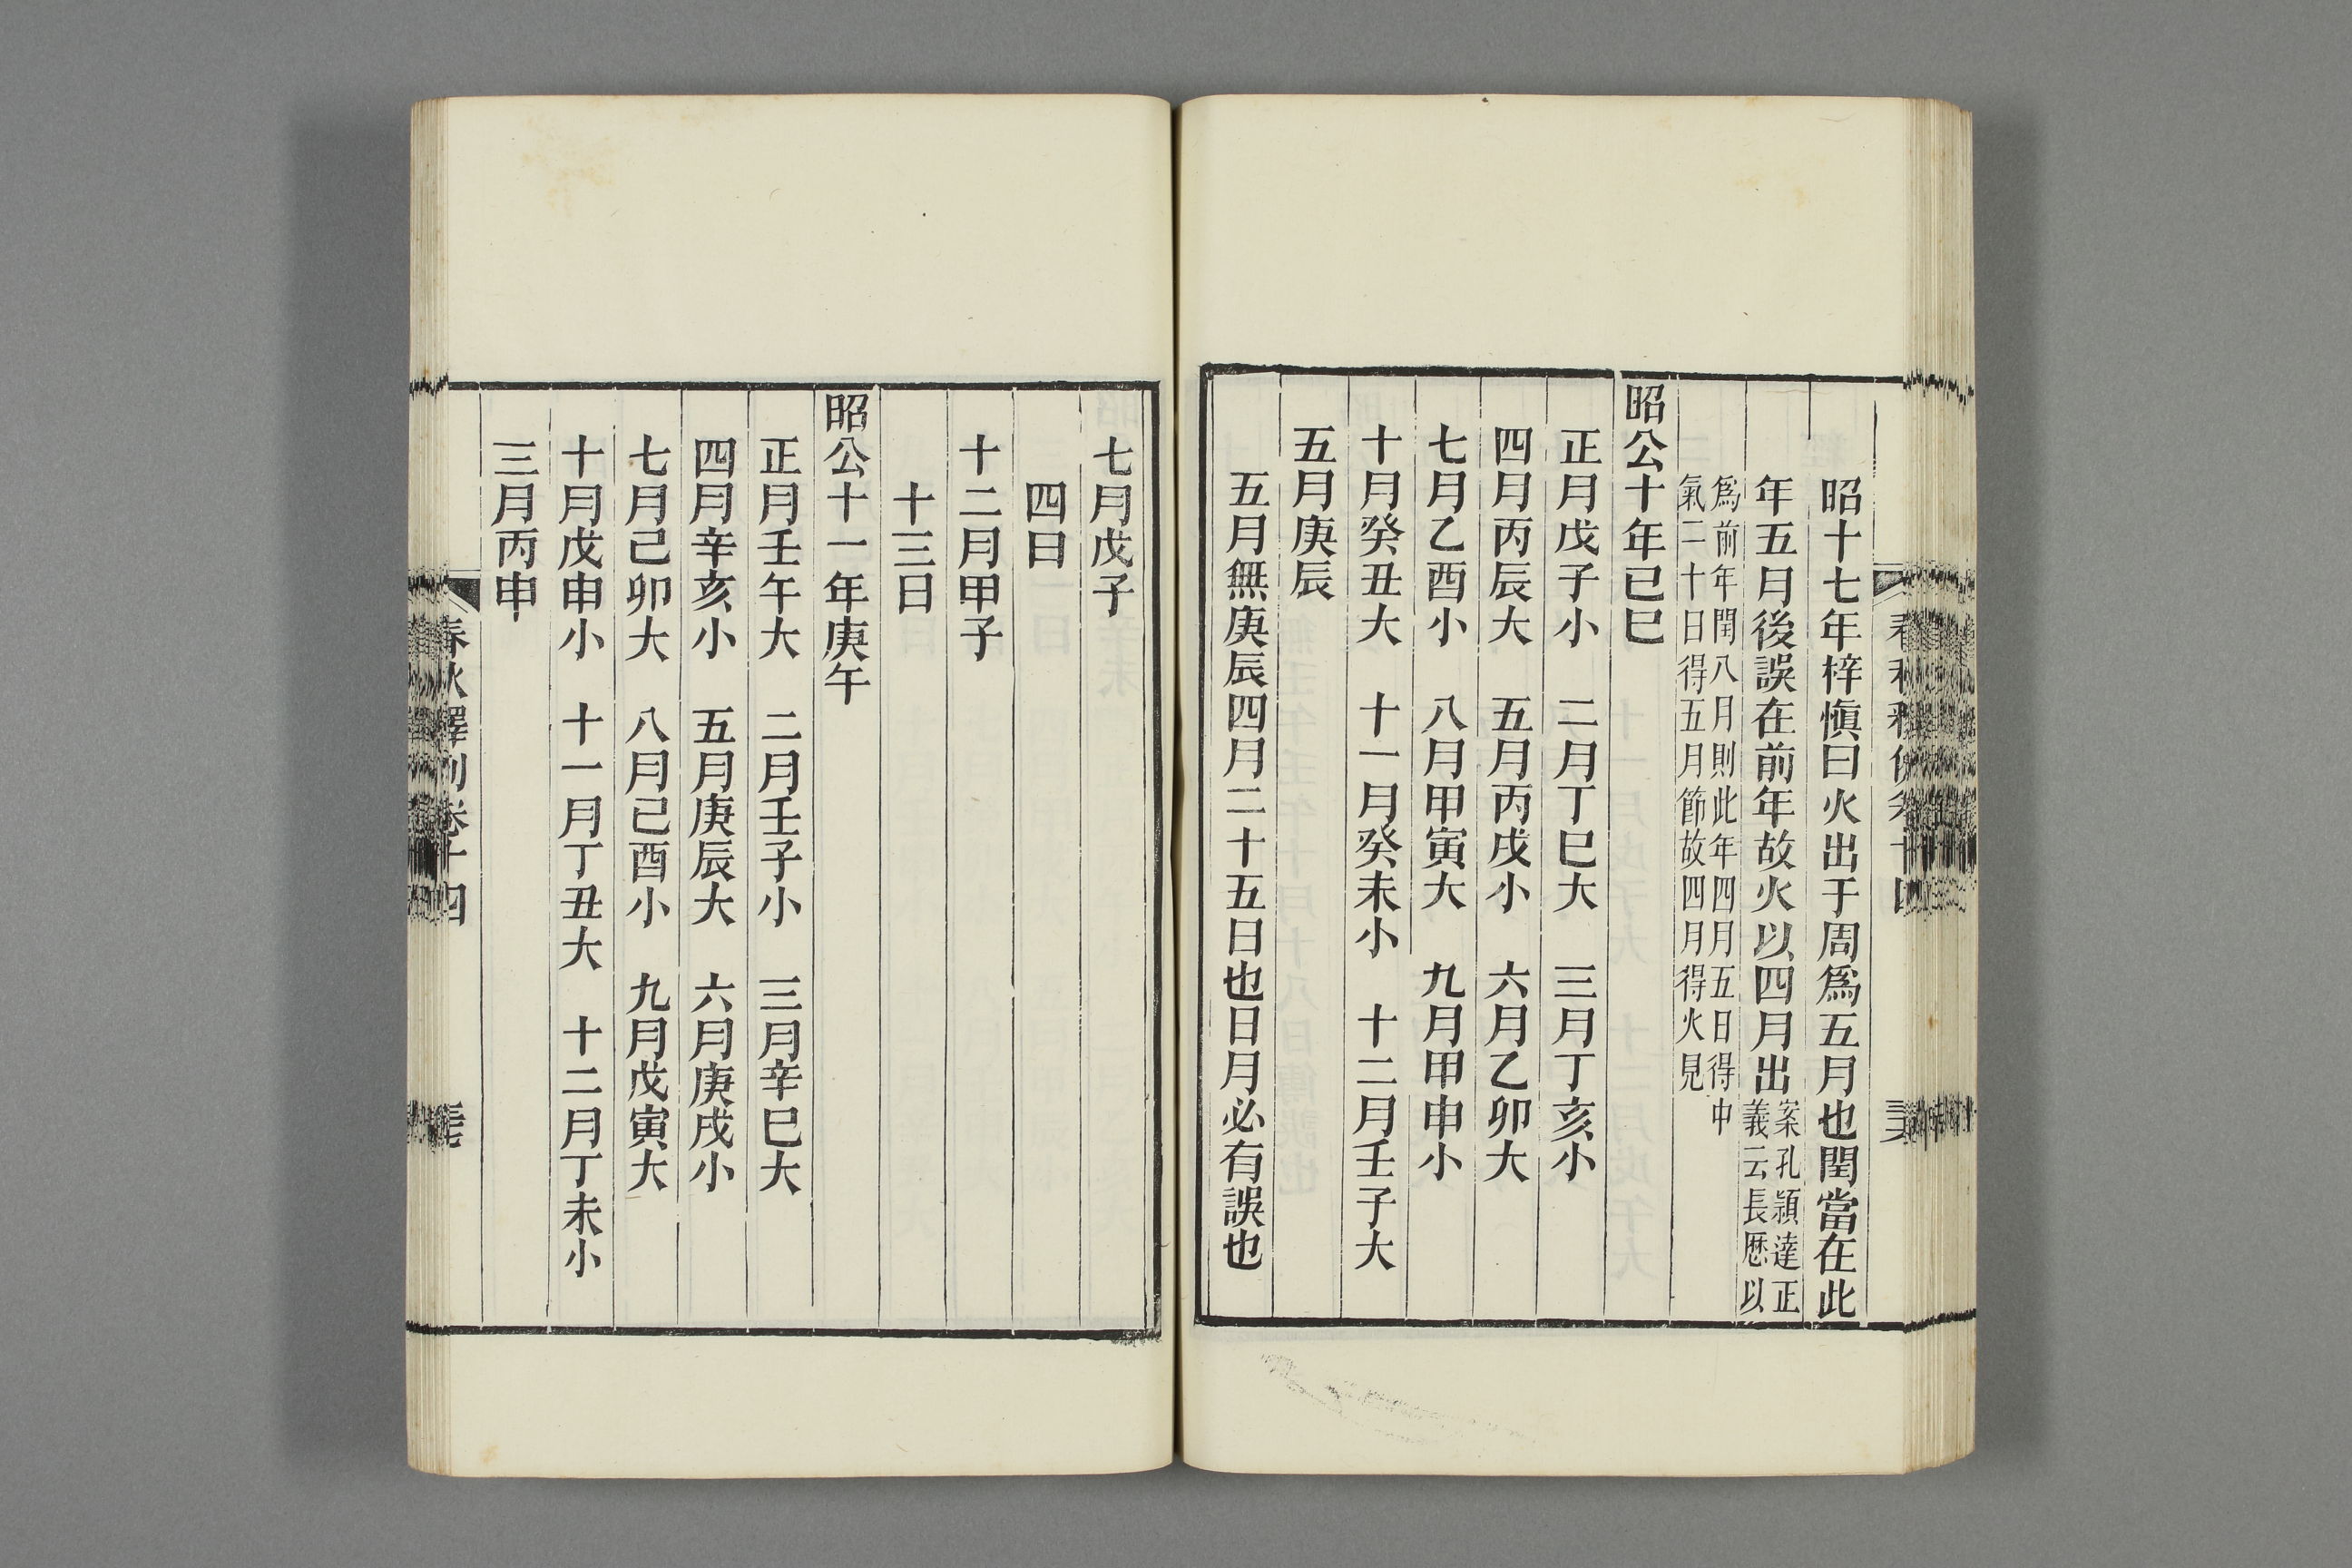 昭十七年梓愼曰火出于周爲五月也閏當在此
年五月後誤在前年故火以四月出案孔穎達正
義云長厯以
爲前年閏八月則此年四月五日得中
氣二十日得五月節故四月得火見
昭公十年己巳
正月戊子小　二月丁巳大　三月丁亥小
四月丙辰大　五月丙戌小　六月乙卯大
七月乙酉小　八月甲寅大　九月甲申小
十月癸丑大　十一月癸未小　十二月壬子大
五月庚辰
五月無庚辰四月二十五日也日月必有誤也
七月戊子
四日
十二月甲子
十三日
昭公十一年庚午
正月壬午大　二月壬子小　三月辛巳大
四月辛亥小　五月庚辰大　六月庚戌小
七月己卯大　八月己酉小　九月戊寅大
十月戊申小　十一月丁丑大　十二月丁未小
三月丙申
春秋釋例卷十四